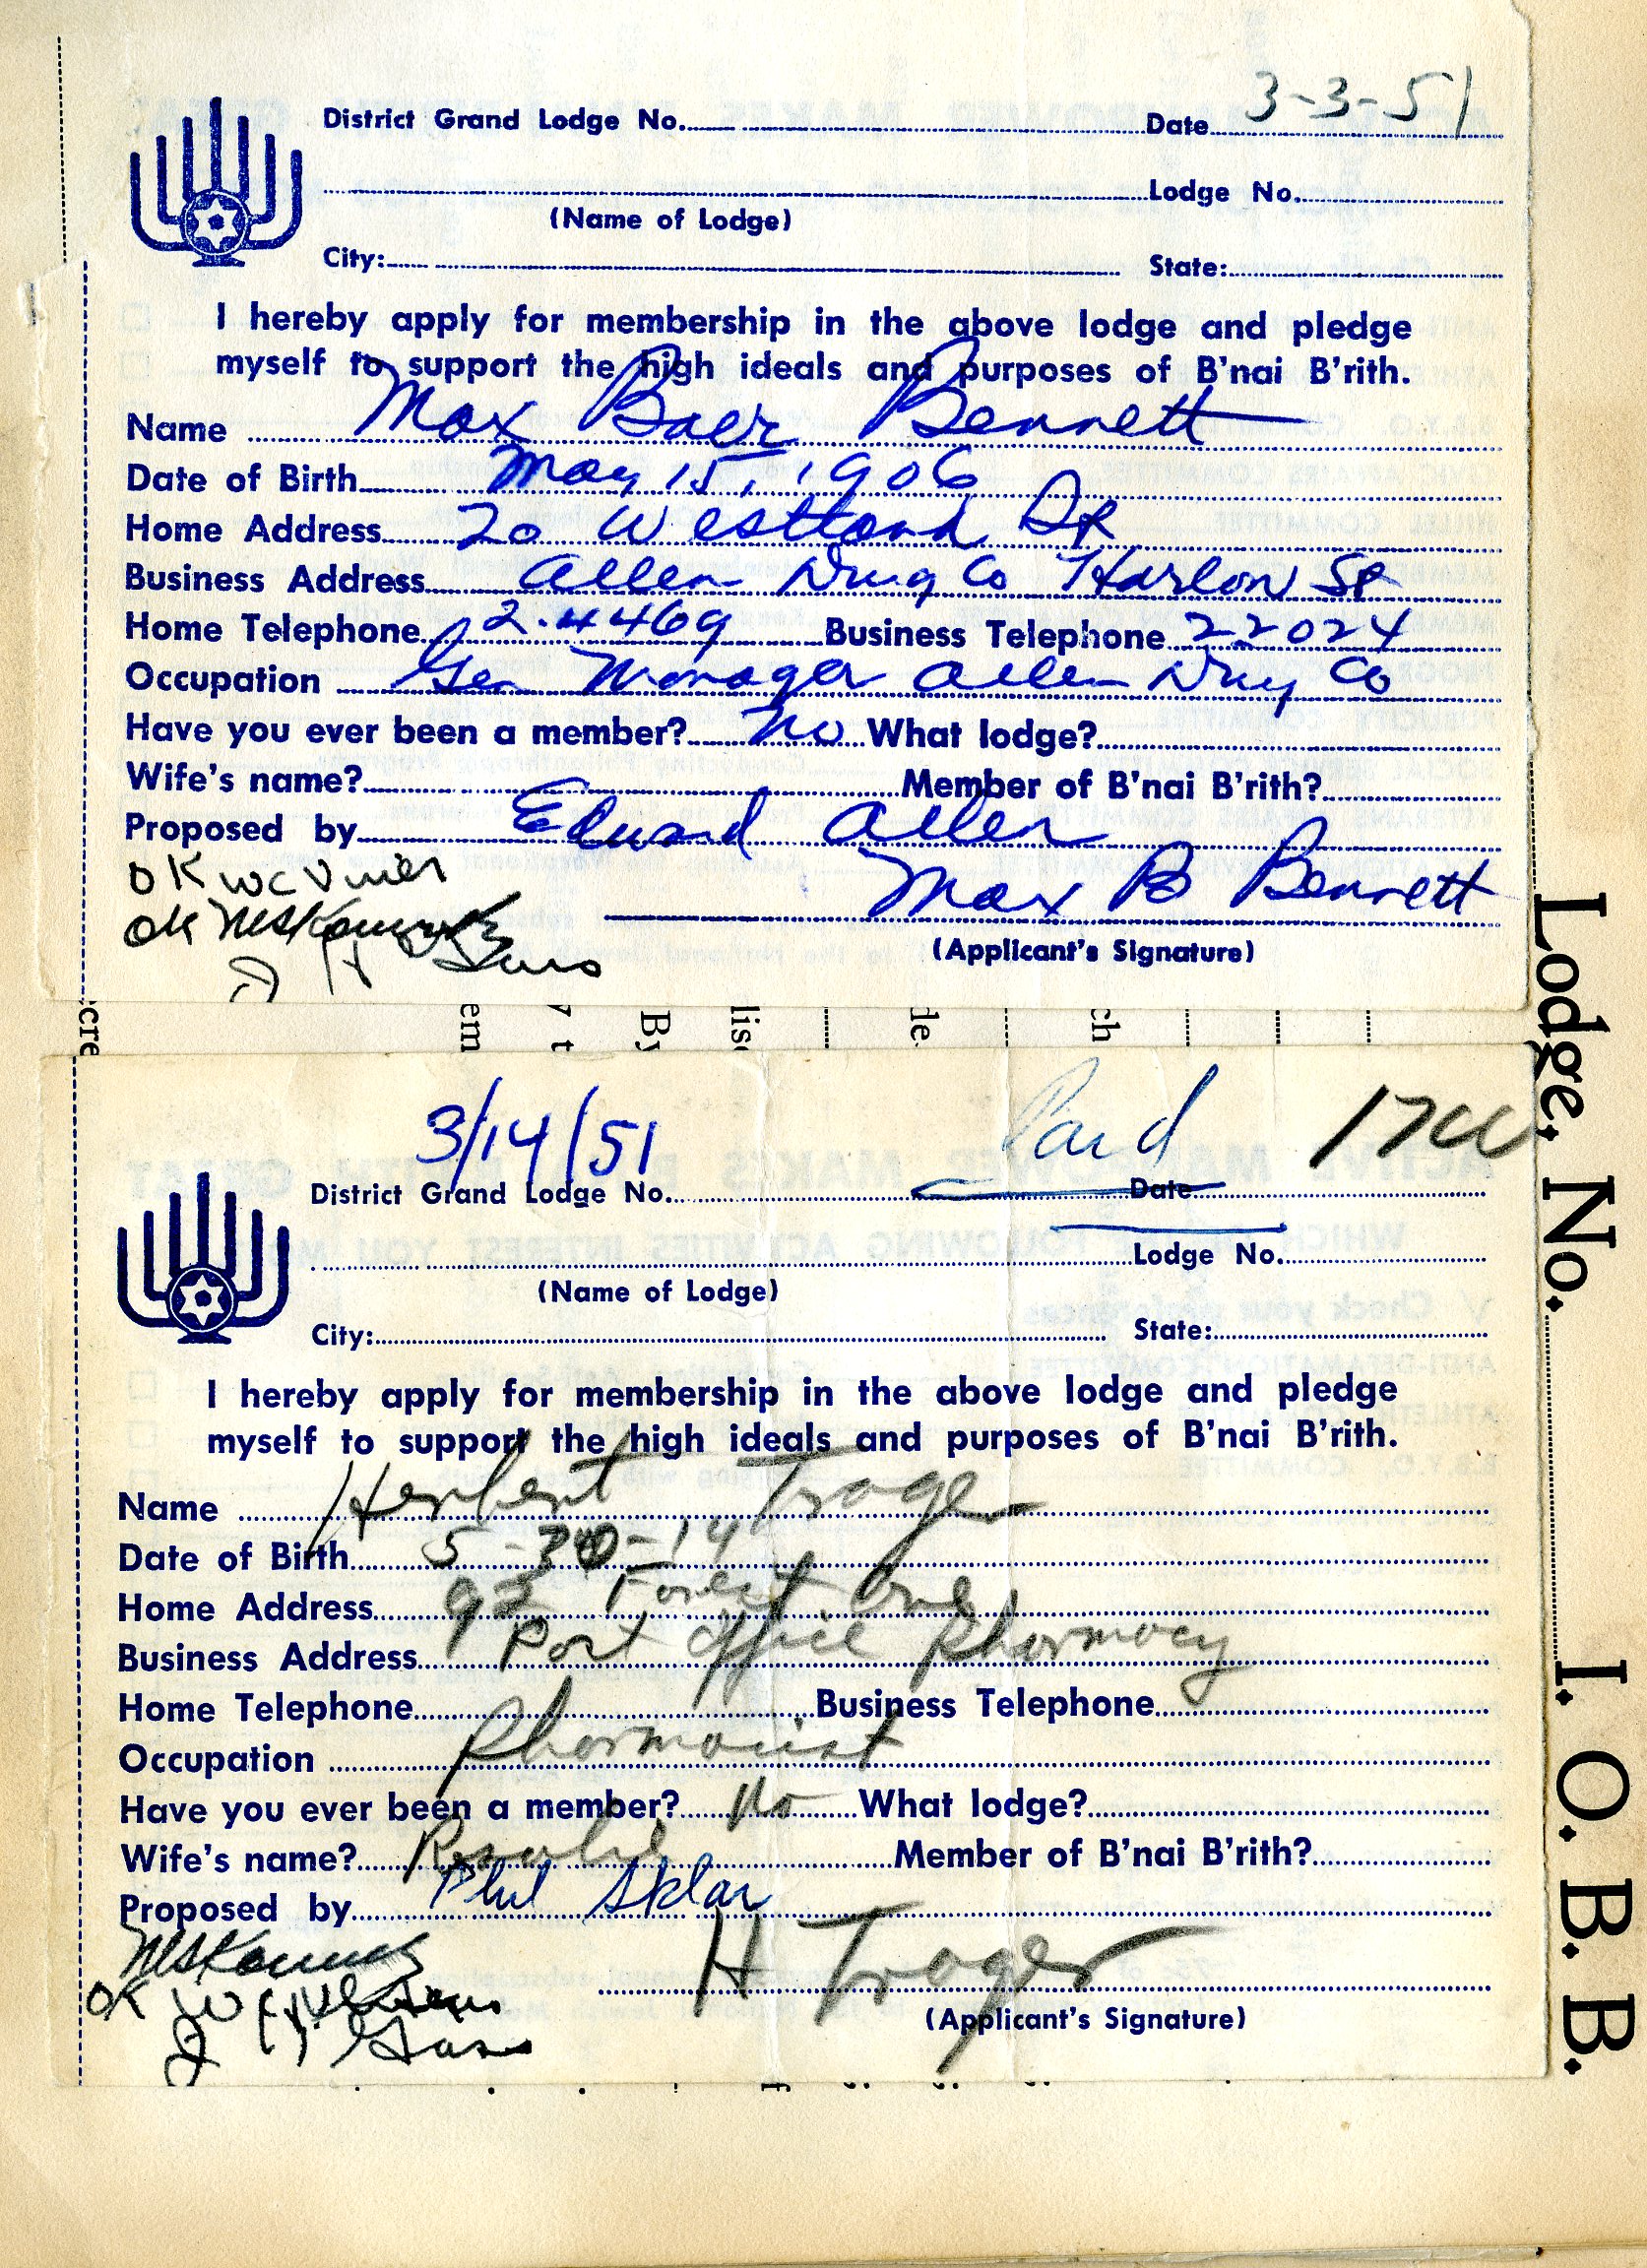 District Grand Lodge No. Date 3-3-51
Lodge No.
(Name of Lodge)
City: State:
I hereby apply for membership in the above lodge and pledge
myself to support the high ideals and purposes of B'nai B'rith.
Name Max Baer Bennett
Date of Birth May 15, 1906
Home Address 20 Westland Dr
Business Address Allen Drug Co Harlow St
Home Telephone 2-4469 Business Telephone 22024
Occupation Gen Manager Allen Drug Co
Have you ever been a member? No What lodge?
Wife's name? Member of B'nai B'rith?
Proposed by Edward Allen
OK WC
OK
Max B Bennett
(Applicant's Signature)
cre em y t By lis de ch
3/14/51 Paid 1700
District Grand Lodge No. Date
Lodge No.
(Name of Lodge)
City: State:
I hereby apply for membership in the above lodge and pledge
myself to support the high ideals and purposes of B'nai B'rith.
Name Herbert Troger
Date of Birth 5-30-14
Home Address 92 Forest Ave
Business Address Post Office Pharmacy
Home Telephone Business Telephone
Occupation Pharmacist
Have you ever been a member? No What lodge?
Wife's name? Rosalie Member of B'nai B'rith?
Proposed by Phil Sklar
OK
H Troger
(Applicant's Signature)
Lodge, No. I. O. B. B.